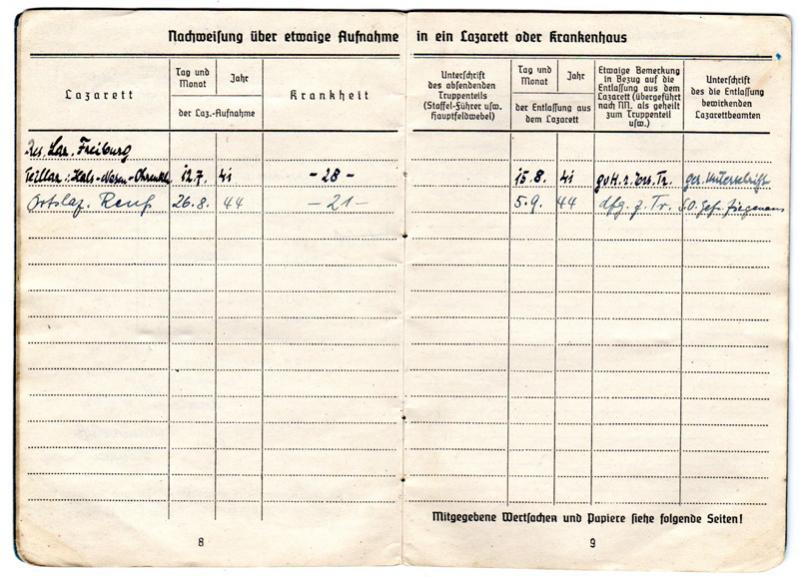 Nachweisung über etwaige Aufnahme in ein Lazarett oder Krankenhaus
Lazarett
Tag und Monat
Jahr
der Laz.-Aufnahme
Krankheit
Unterschrift
des absendenden
Truppenteils
(Staffel-Führer usw.
Hauptfeldwebel)
Tag und Monat
Jahr
der Entlassung aus
dem Lazarett
Etwaige Bemerkung
in Bezug auf die
Entlassung aus dem
Lazarett (übergeführt
nach NN. als geheilt
zum Truppenteil
usw.)
Unterschrift
des die Entlassung
bewirkenden
Lazarettbeamten
Res. Laz. Freiburg
Teillaz.: Hals-Nasen-Ohren 12.7. 41 - 28 - 15.8. 41 Tr. gez. Unterschrift
Ortslaz. 26.8. 44 - 21 - 5.9. 44 dfg. z. Tr.
Mitgegebene Wertsachen und Papiere siehe folgende Seiten!
8
9